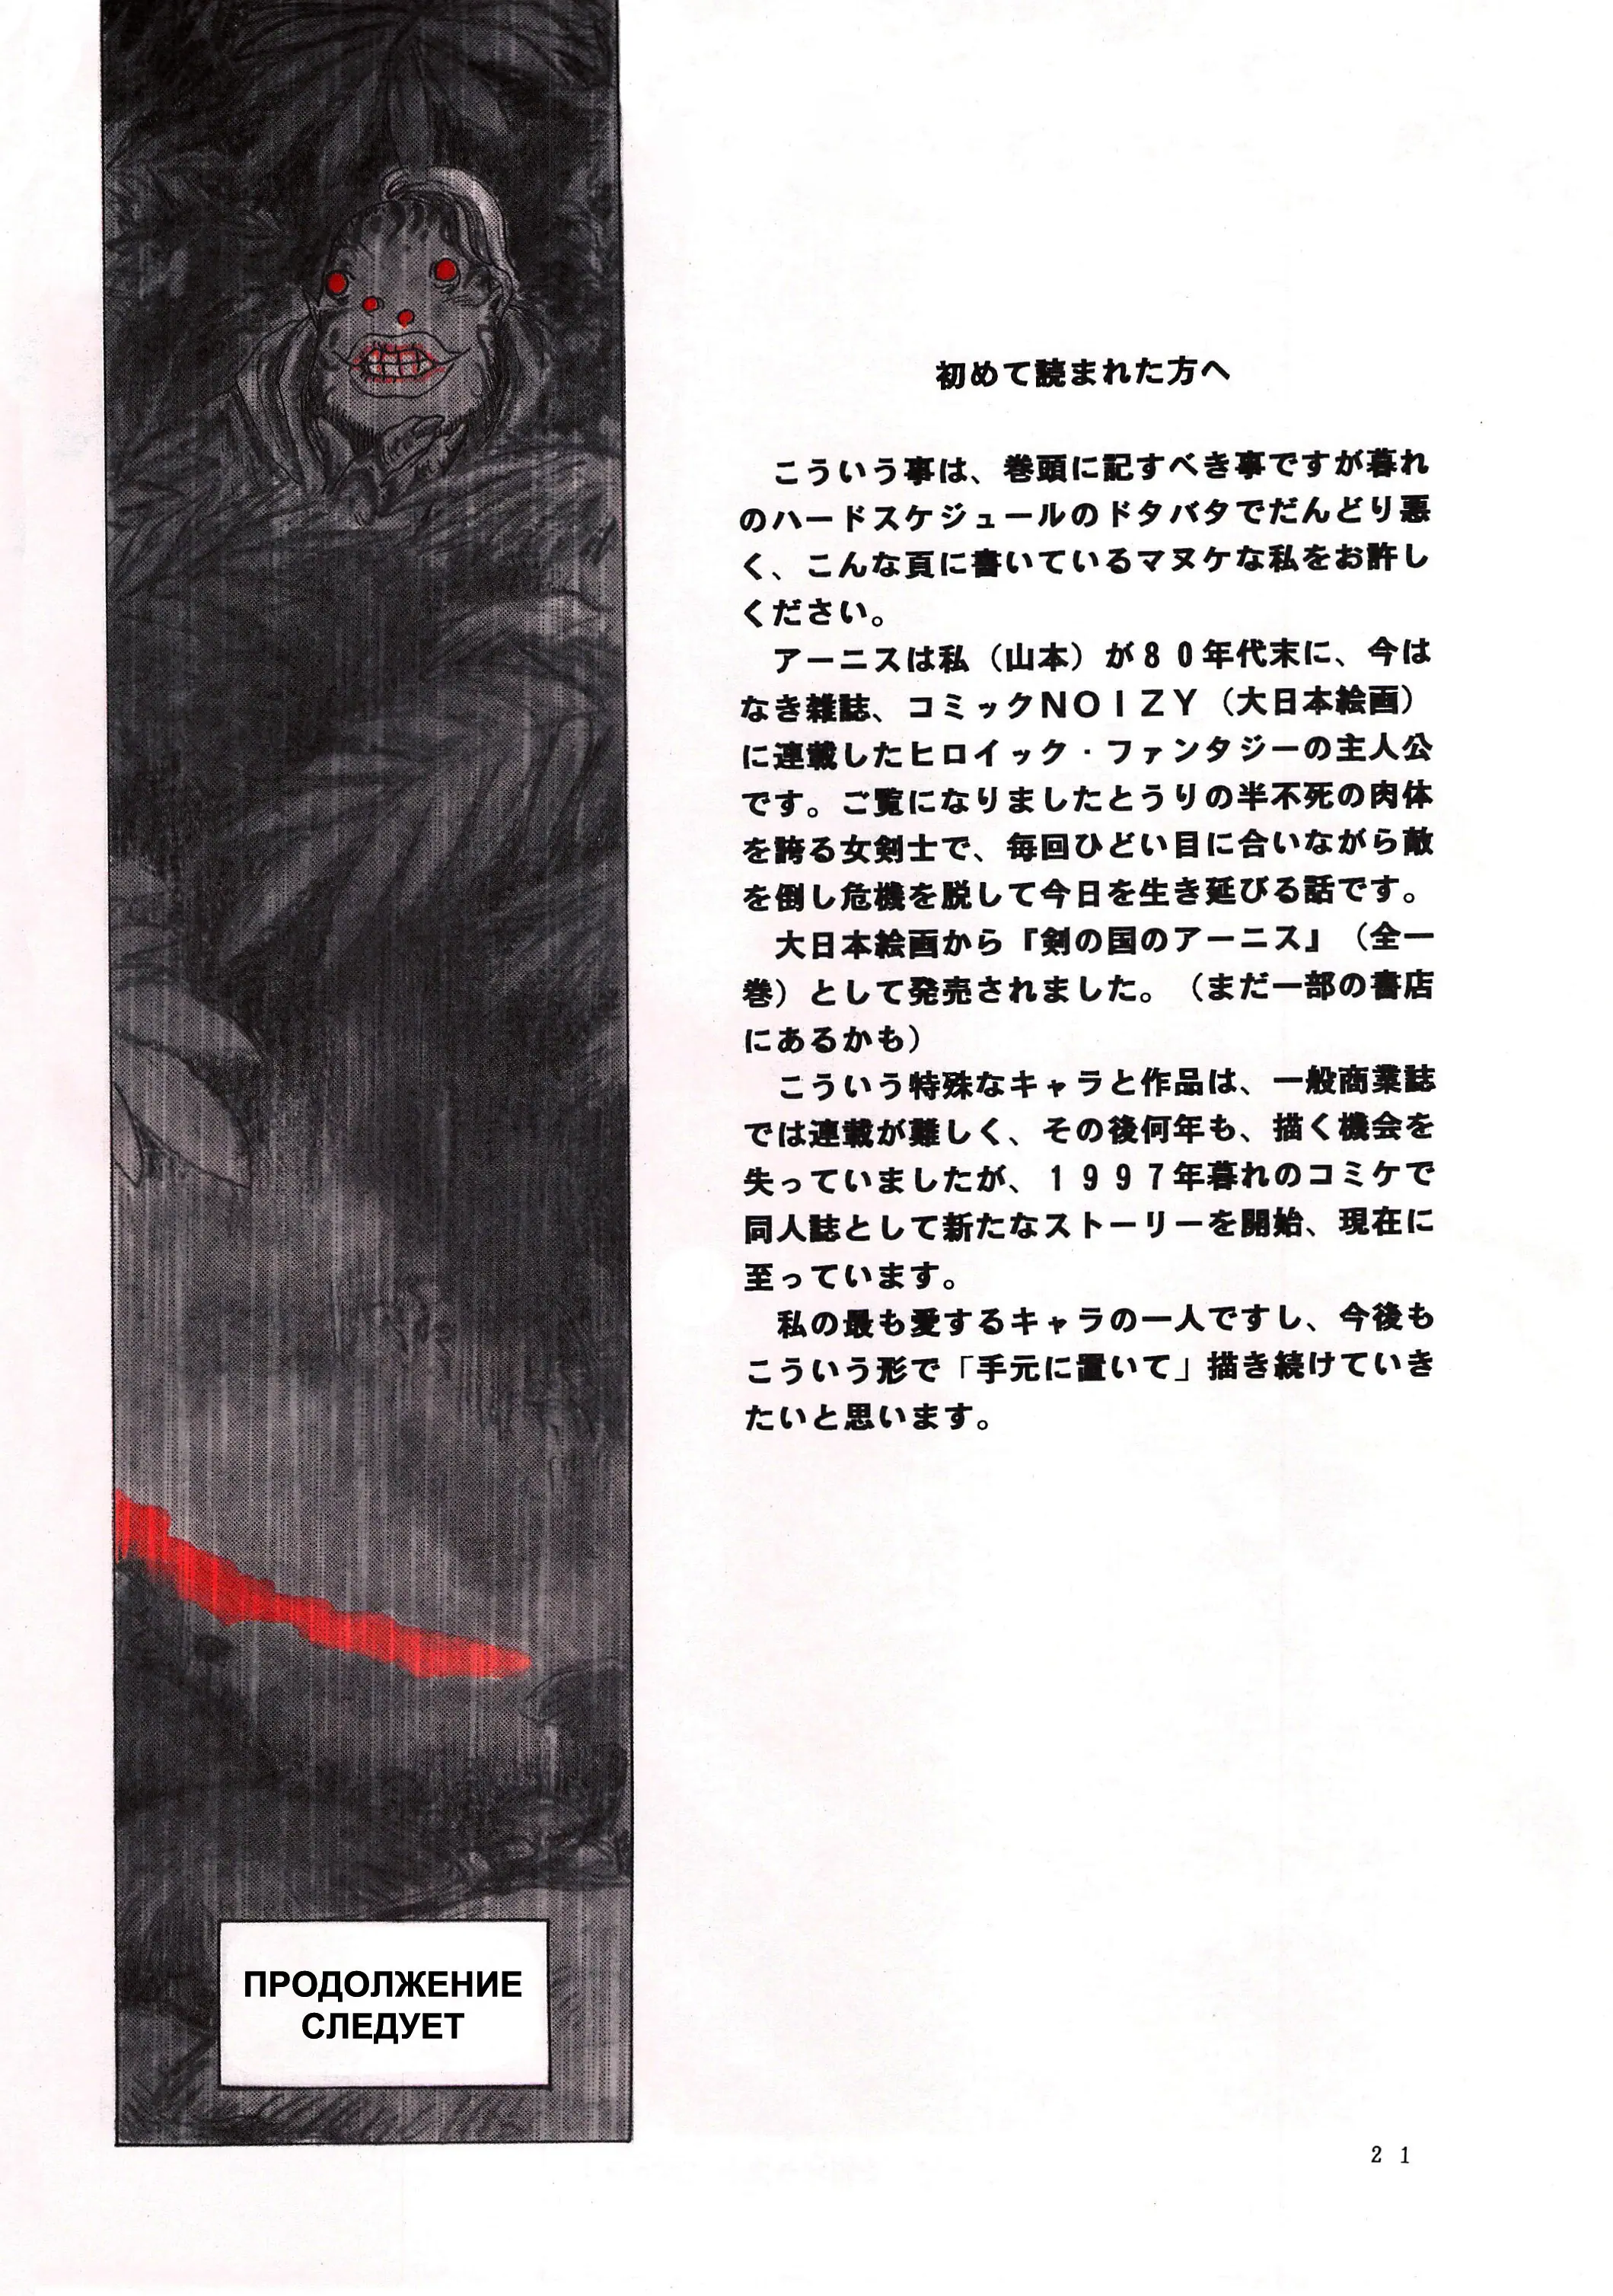 初めて読まれた方へ
こういう事は、巻頭に記すべき事ですが暮れ
のハードスケジュールのドタバタでだんどり悪
く、こんな頁に書いているマヌケな私をお許し
ください。
アーニスは私（山本）が８０年代末に、今は
なき雑誌、コミックＮＯＩＺＹ（大日本絵画）
に連載したヒロイック・ファンタジーの主人公
です。ご覧になりましたとうりの半不死の肉体
を誇る女剣士で、毎回ひどい目に合いながら敵
を倒し危機を脱して今日を生き延びる話です。
大日本絵画から『剣の国のアーニス』（全一
巻）として発売されました。（まだ一部の書店
にあるかも）
こういう特殊なキャラと作品は、一般商業誌
では連載が難しく、その後何年も、描く機会を
失っていましたが、１９９７年暮れのコミケで
同人誌として新たなストーリーを開始、現在に
至っています。
私の最も愛するキャラの一人ですし、今後も
こういう形で「手元に置いて」描き続けていき
たいと思います。
ПРОДОЛЖЕНИЕ
СЛЕДУЕТ
２１